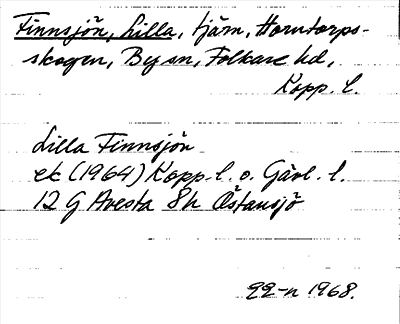 Finnsjön, Lilla, tjärn, Horntorps-
skogen, By sn, Folkare hd,
Kopp. l.
Lilla Finnsjön
ek (1964) Kopp. l. o. Gävl. l.
12 G Avesta 8h Östansjö
22-n 1968.